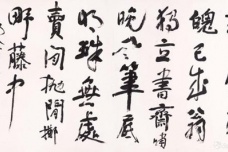 魄已成翁
獨立書齋嘯
晚風筆底
明珠無處
賣閑拋閑擲
野藤中